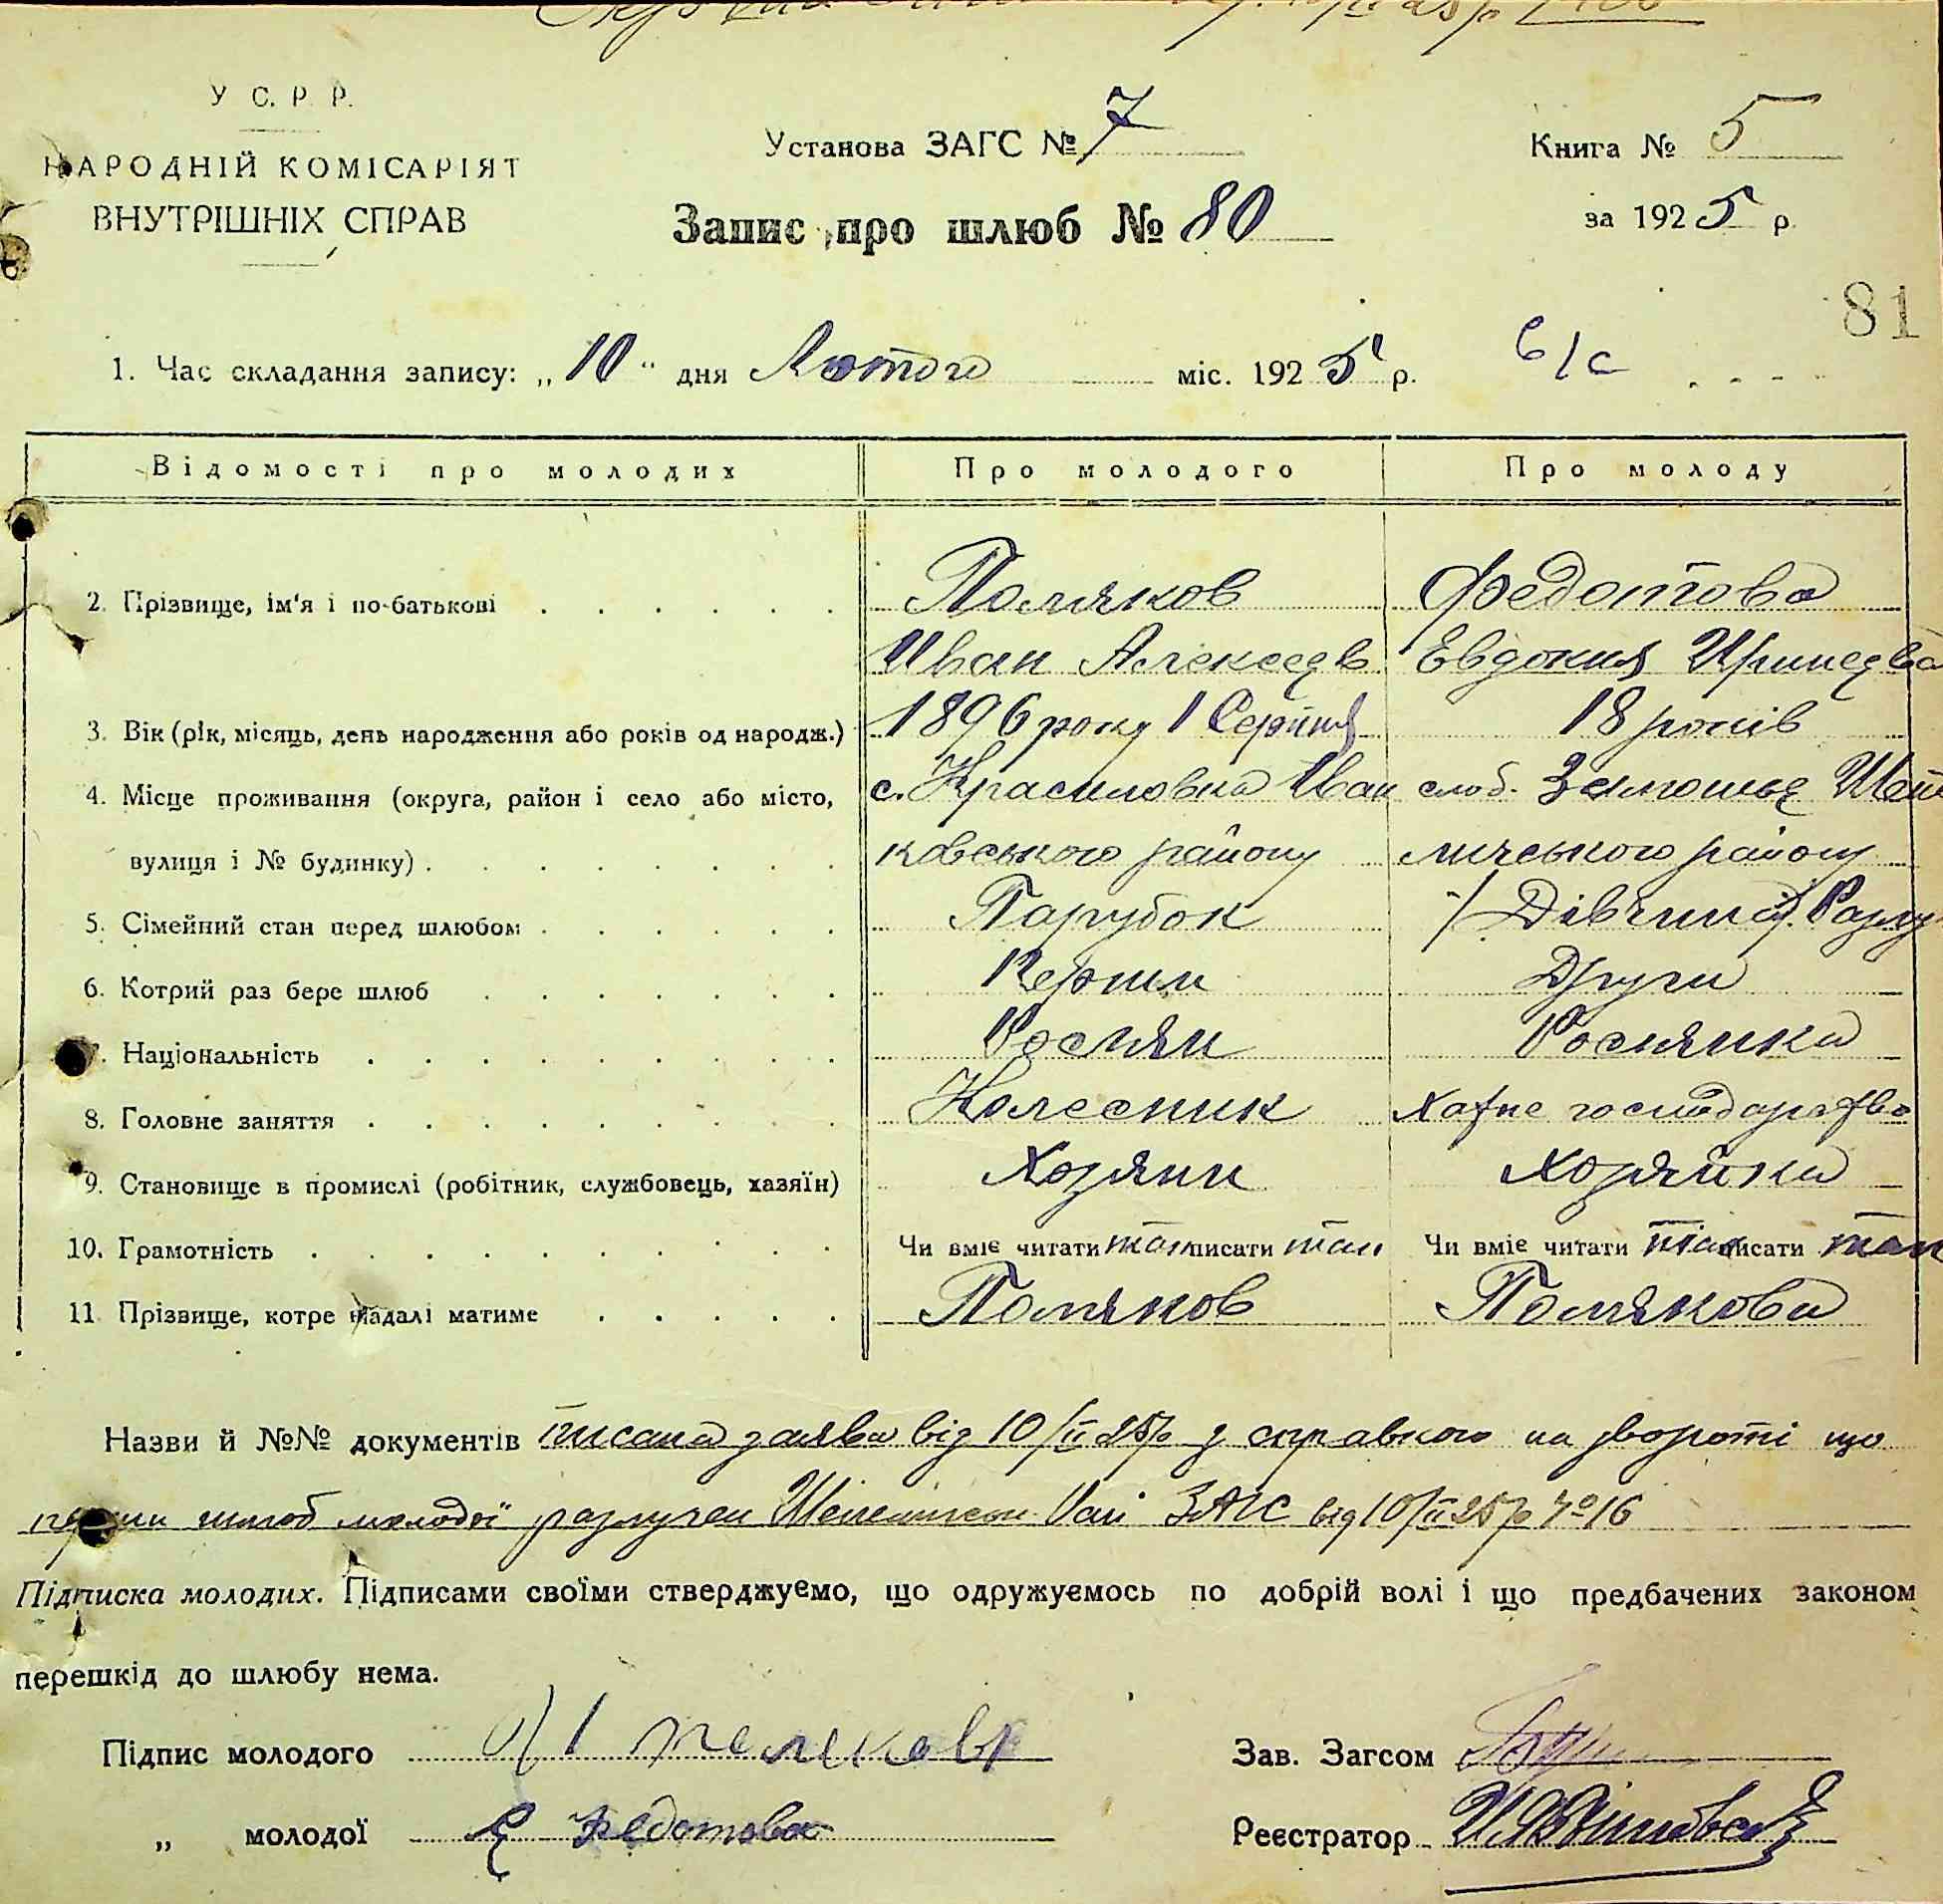 У С. Р. Р.
НАРОДНІЙ КОМІСАРІЯТ
ВНУТРІШНІХ СПРАВ
Установа ЗАГС № 7
Запис про шлюб № 80
Книга № 5
за 1925 р.
81
1. Час складання запису: „10" дня Лютого міс. 1925 р. б/с
Відомості про молодих Про молодого Про молоду
2. Прізвище, ім'я і по-батькові Поляков Федотова
Иван Алексеев Евдокия
3. Вік (рік, місяць, день народження або років од народж.) 1896 року 1 Серпня 18 років
4. Місце проживання (округа, район і село або місто, с. Красиловка Иван слоб.
вулиця і № будинку) ковського району личського району
5. Сімейний стан перед шлюбом Парубок Дівчина
6. Котрий раз бере шлюб Перши Други
7. Національність Росиян Росиянка
8. Головне заняття Колесник Хатне господарство
9. Становище в промислі (робітник, службовець, хазяїн) Хозяин Хозяйка
10. Грамотність Чи вміє читати так писати так Чи вміє читати так писати так
11. Прізвище, котре надалі матиме Поляков Полякова
Назви й №№ документів писана заява від 10/II 25 р з справкою на звороті що
перши шлюб молодої разлучен ЗАГС від 10/II 25 р № 16
Підписка молодих. Підписами своїми стверджуємо, що одружуємось по добрій волі і що предбачених законом
перешкід до шлюбу нема.
Підпис молодого
Зав. Загсом
„ молодої Е Федотова
Реєстратор